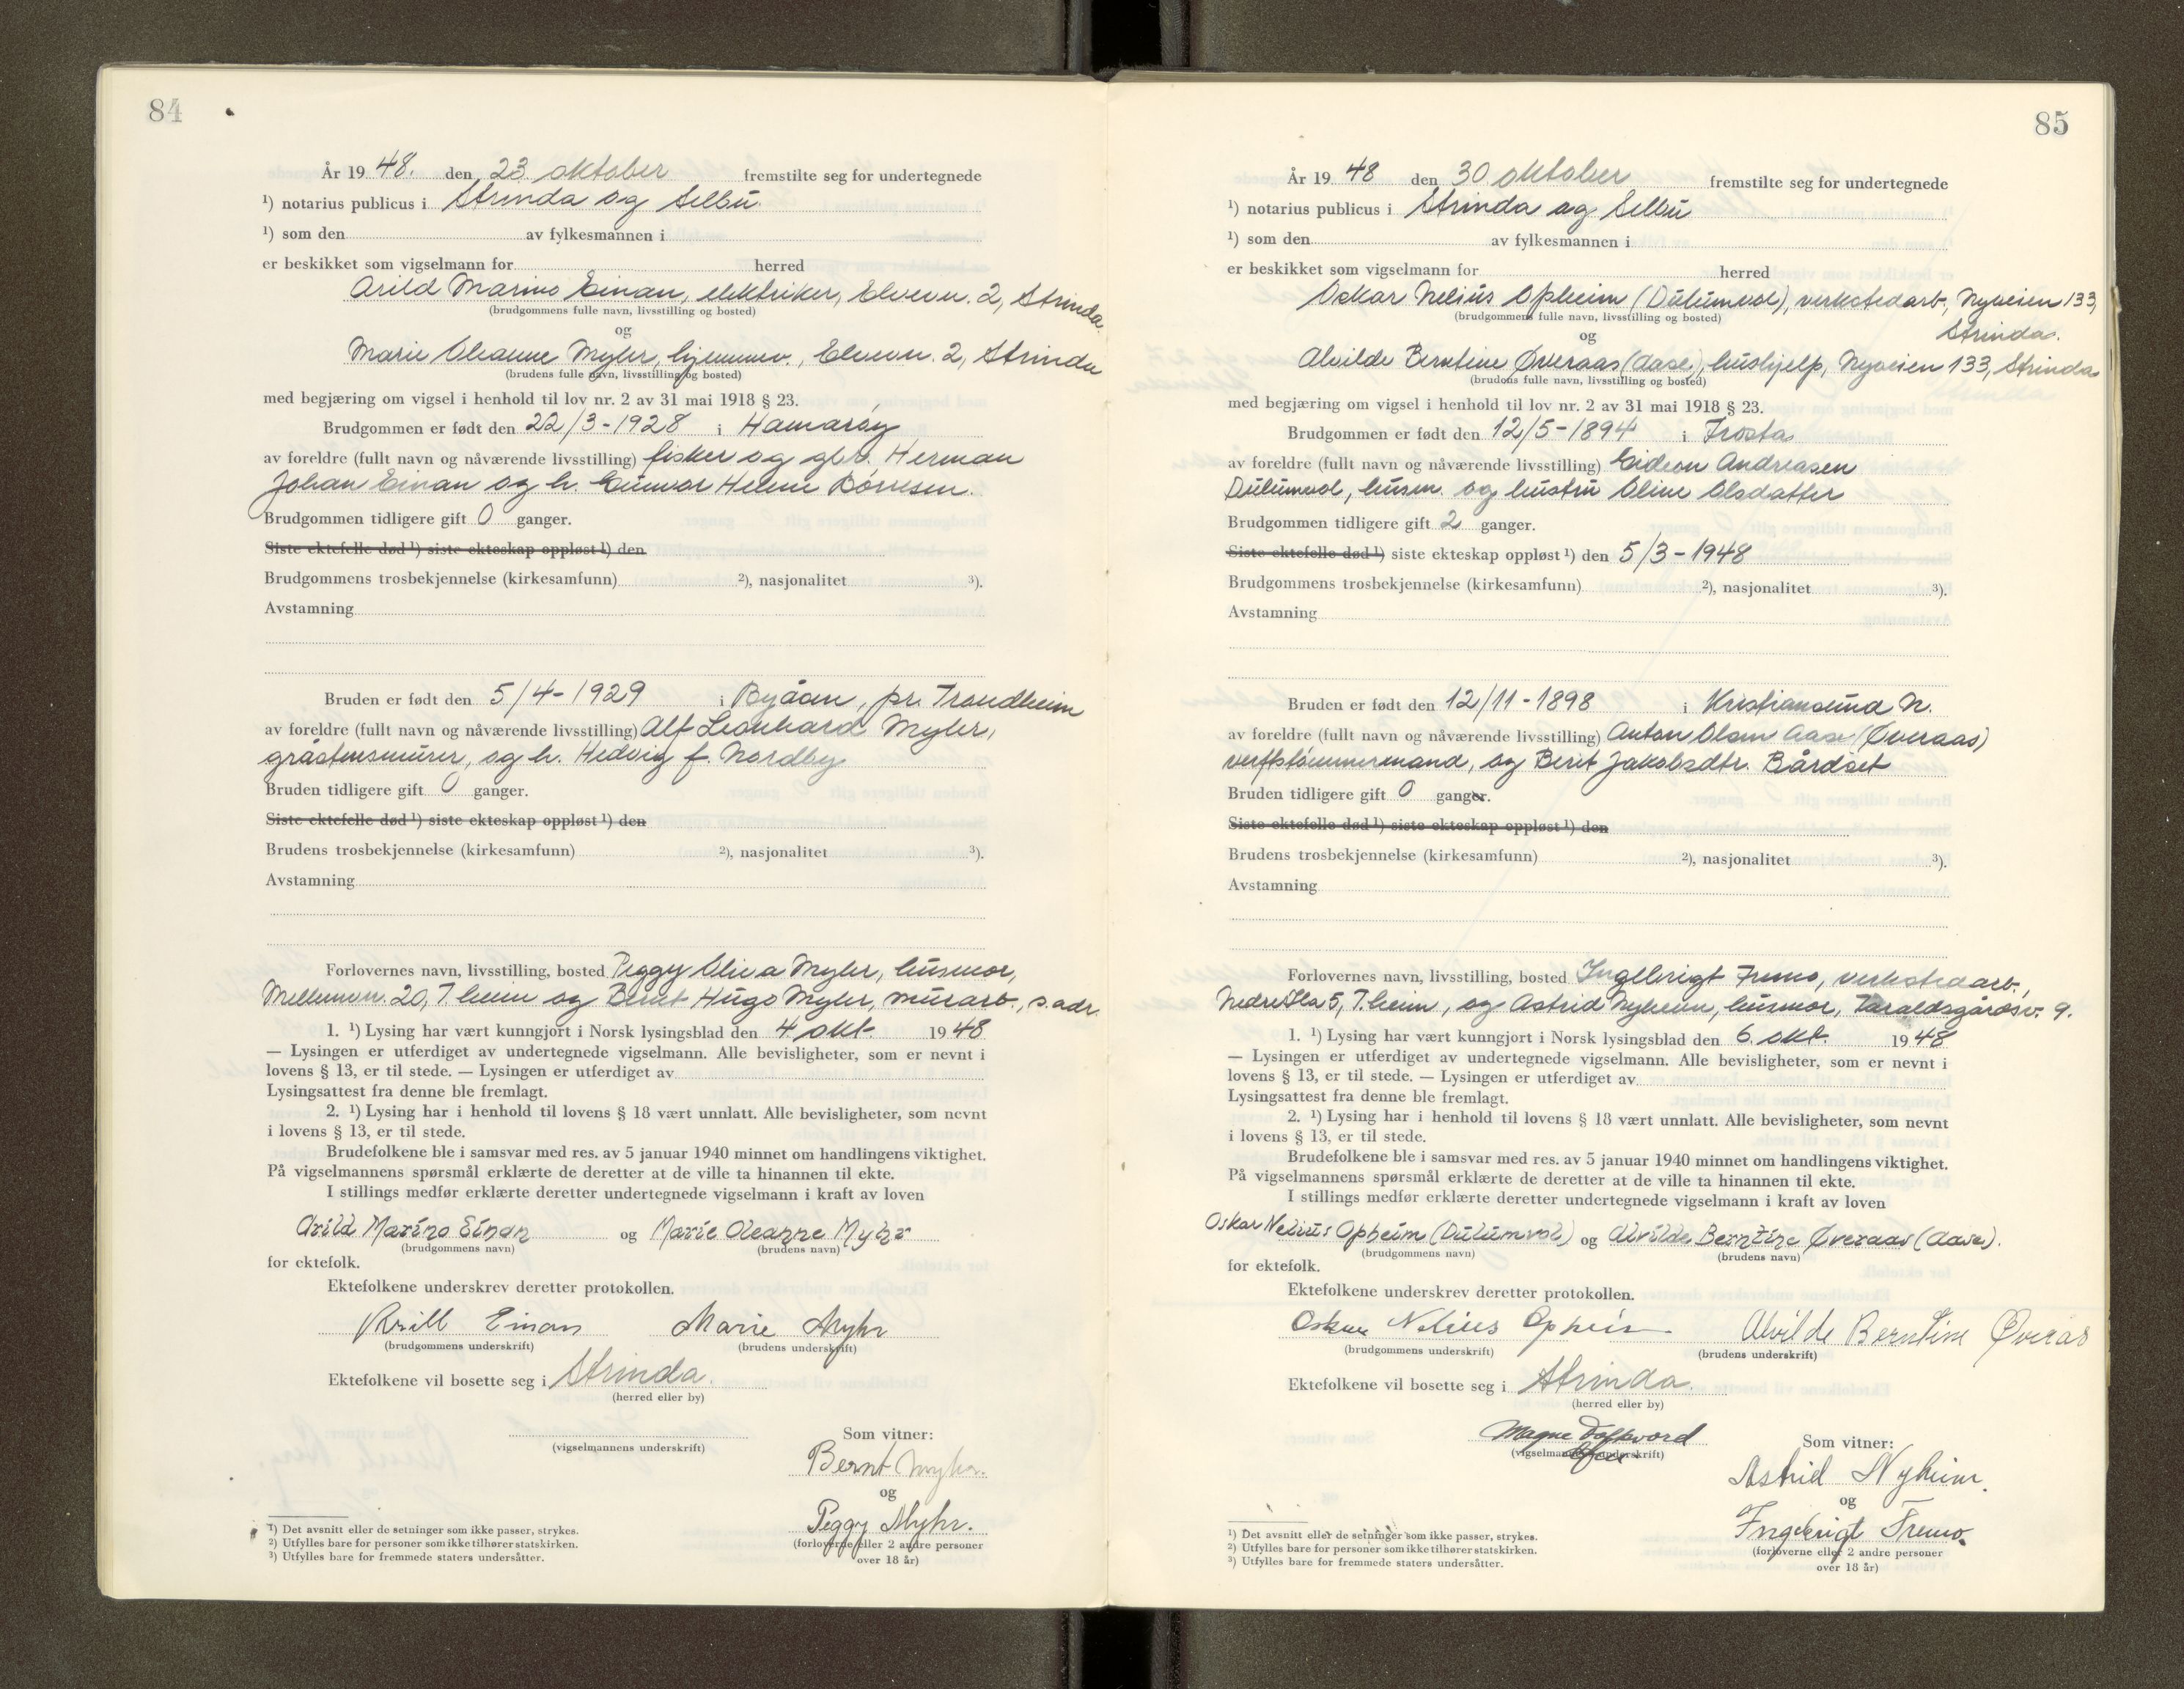 84
År 19 48. den 23 oktober fremstilte seg for undertegnede
¹) notarius publicus i Strinda og Selbu
¹) som den av fylkesmannen i
er beskikket som vigselmann for herred
Arild Marino Einan, elektriker, Elvevn. 2, Strinda.
(brudgommens fulle navn, livsstilling og bosted)
og
Marie Oleanne Myhr, hjemmev., Elvevn. 2, Strinda
(brudens fulle navn, livsstilling og bosted)
med begjæring om vigsel i henhold til lov nr. 2 av 31 mai 1918 § 23.
Brudgommen er født den 22/3-1928 i Hamarøy
av foreldre (fullt navn og nåværende livsstilling) fisker og gbr. Herman
Johan Einan og h. Gunvor Helene Børresen.
Brudgommen tidligere gift 0 ganger.
Siste ektefelle død ¹) siste ekteskap oppløst ¹) den
Brudgommens trosbekjennelse (kirkesamfunn) ²), nasjonalitet ³).
Avstamning
Bruden er født den 5/4-1929 i Byåsen, pr. Trondheim
av foreldre (fullt navn og nåværende livsstilling) Alf Leonhard Myhr,
gråstensmurer, og h. Hedvig f. Nordby
Bruden tidligere gift 0 ganger.
Siste ektefelle død ¹) siste ekteskap oppløst ¹) den
Brudens trosbekjennelse (kirkesamfunn) ²), nasjonalitet ³).
Avstamning
Forlovernes navn, livsstilling, bosted Peggy Myhr, husmor,
20, T.heim og Bernt Hugo Myhr, murarb., s. adr.
1. ¹) Lysing har vært kunngjort i Norsk lysingsblad den 4. okt. 19 48
— Lysingen er utferdiget av undertegnede vigselmann. Alle bevisligheter, som er nevnt i
lovens § 13, er til stede. — Lysingen er utferdiget av
Lysingsattest fra denne ble fremlagt.
2. ¹) Lysing har i henhold til lovens § 18 vært unnlatt. Alle bevisligheter, som nevnt
i lovens § 13, er til stede.
Brudefolkene ble i samsvar med res. av 5 januar 1940 minnet om handlingens viktighet.
På vigselmannens spørsmål erklærte de deretter at de ville ta hinannen til ekte.
I stillings medfør erklærte deretter undertegnede vigselmann i kraft av loven
Arild Marino Einan og Marie Oleanne Myhr
(brudgommens navn) (brudens navn)
for ektefolk.
Ektefolkene underskrev deretter protokollen.
Arill Einan Marie Myhr
(brudgommens underskrift) (brudens underskrift)
Ektefolkene vil bosette seg i Strinda.
(herred eller by)
Som vitner:
(vigselmannens underskrift)
Bernt Myhr.
og
Peggy Myhr.
(forloverne eller 2 andre personer
over 18 år)
¹) Det avsnitt eller de setninger som ikke passer, strykes.
²) Utfylles bare for personer som ikke tilhører statskirken.
³) Utfylles bare for fremmede staters undersåtter.
85
År 19 48 den 30 oktober fremstilte seg for undertegnede
¹) notarius publicus i Strinda og Selbu
¹) som den av fylkesmannen i
er beskikket som vigselmann for herred
Oskar Nelius Opheim (Dulumvol), verkstedarb., Nyveien 133,
Strinda.
(brudgommens fulle navn, livsstilling og bosted)
og
Alvilde Berntine Øveraas (Aase), hushjelp, Nyveien 133, Strinda
(brudens fulle navn, livsstilling og bosted)
med begjæring om vigsel i henhold til lov nr. 2 av 31 mai 1918 § 23.
Brudgommen er født den 12/5-1894 i Frosta
av foreldre (fullt navn og nåværende livsstilling) Gideon Andreasen
Dulumvol, husm. og hustru Oline Olsdatter
Brudgommen tidligere gift 2 ganger.
Siste ektefelle død ¹) siste ekteskap oppløst ¹) den 5/3-1948
Brudgommens trosbekjennelse (kirkesamfunn) ²), nasjonalitet ³).
Avstamning
Bruden er født den 12/11-1898 i Kristiansund N.
av foreldre (fullt navn og nåværende livsstilling) Anton Olsen Aase (Øveraas)
verftstømmermand, og Berit Jakobsdtr. Bårdset
Bruden tidligere gift 0 ganger.
Siste ektefelle død ¹) siste ekteskap oppløst ¹) den
Brudens trosbekjennelse (kirkesamfunn) ²), nasjonalitet ³).
Avstamning
Forlovernes navn, livsstilling, bosted Ingebrigt Fremo, verkstedarb.,
Nedre Ila 5, T.heim, og Astrid Nyheim, husmor, Taraldsgårdsv. 9.
1. ¹) Lysing har vært kunngjort i Norsk lysingsblad den 6. okt. 19 48
— Lysingen er utferdiget av undertegnede vigselmann. Alle bevisligheter, som er nevnt i
lovens § 13, er til stede. — Lysingen er utferdiget av
Lysingsattest fra denne ble fremlagt.
2. ¹) Lysing har i henhold til lovens § 18 vært unnlatt. Alle bevisligheter, som nevnt
i lovens § 13, er til stede.
Brudefolkene ble i samsvar med res. av 5 januar 1940 minnet om handlingens viktighet.
På vigselmannens spørsmål erklærte de deretter at de ville ta hinannen til ekte.
I stillings medfør erklærte deretter undertegnede vigselmann i kraft av loven
Oskar Nelius Opheim (Dulumvol) og Alvilde Berntine Øveraas (Aase).
(brudgommens navn) (brudens navn)
for ektefolk.
Ektefolkene underskrev deretter protokollen.
Oskar Nelius Opheim Alvilde Berntine Øveras
(brudgommens underskrift) (brudens underskrift)
Ektefolkene vil bosette seg i Strinda.
(herred eller by)
Magne
(vigselmannens underskrift)
Som vitner:
Astrid Nyheim.
og
Ingebrigt Fremo.
(forloverne eller 2 andre personer
over 18 år)
¹) Det avsnitt eller de setninger som ikke passer, strykes.
²) Utfylles bare for personer som ikke tilhører statskirken.
³) Utfylles bare for fremmede staters undersåtter.